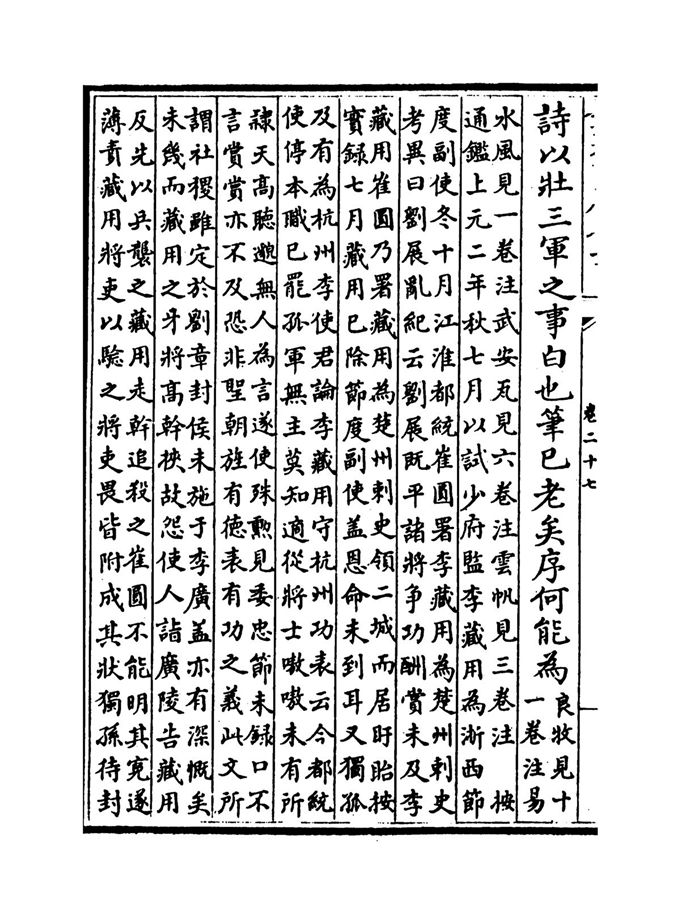 卷二十七
詩以壯三軍之事白也筆已老矣序何能為良牧見十
一卷注易
水風見一卷注武安瓦見六卷注雲帆見三卷注 按
通鑑上元二年秋七月以試少府監李藏用為浙西節
度副使冬十月江淮都統崔圓署李藏用為楚州刺史
考異曰劉展亂紀云劉展既平諸將争功酬賞未及李
藏用崔圓乃署藏用為楚州刺史領二城而居盱眙按
實録七月藏用已除節度副使盖恩命未到耳又獨孤
及有為杭州李使君論李藏用守杭州功表云今都統
使停本職已罷孤軍無主莫知適從將士嗷嗷未有所
隸天高聽邈無人為言遂使殊勲見委忠節未録口不
言賞賞亦不及恐非聖朝旌有德表有功之義此文所
謂社稷雖定於劉章封侯未施于李廣盖亦有深慨矣
未幾而藏用之牙將高幹挾故怨使人詣廣陵告藏用
反先以兵襲之藏用走幹追殺之崔圓不能明其寃遂
薄責藏用將吏以驗之將吏畏皆附成其狀獨孫待封